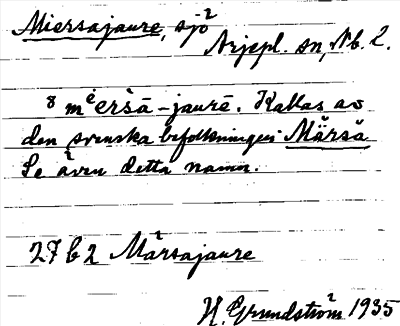 Miersajaure, sjö
Arjepl. sn, Nb. 2.
8 mi̯ersā-jaurē. Kallas av
den svenska befolkningen Märsä
Se även detta namn.
27 b 2 Märsajaure
H. Grundström 1935